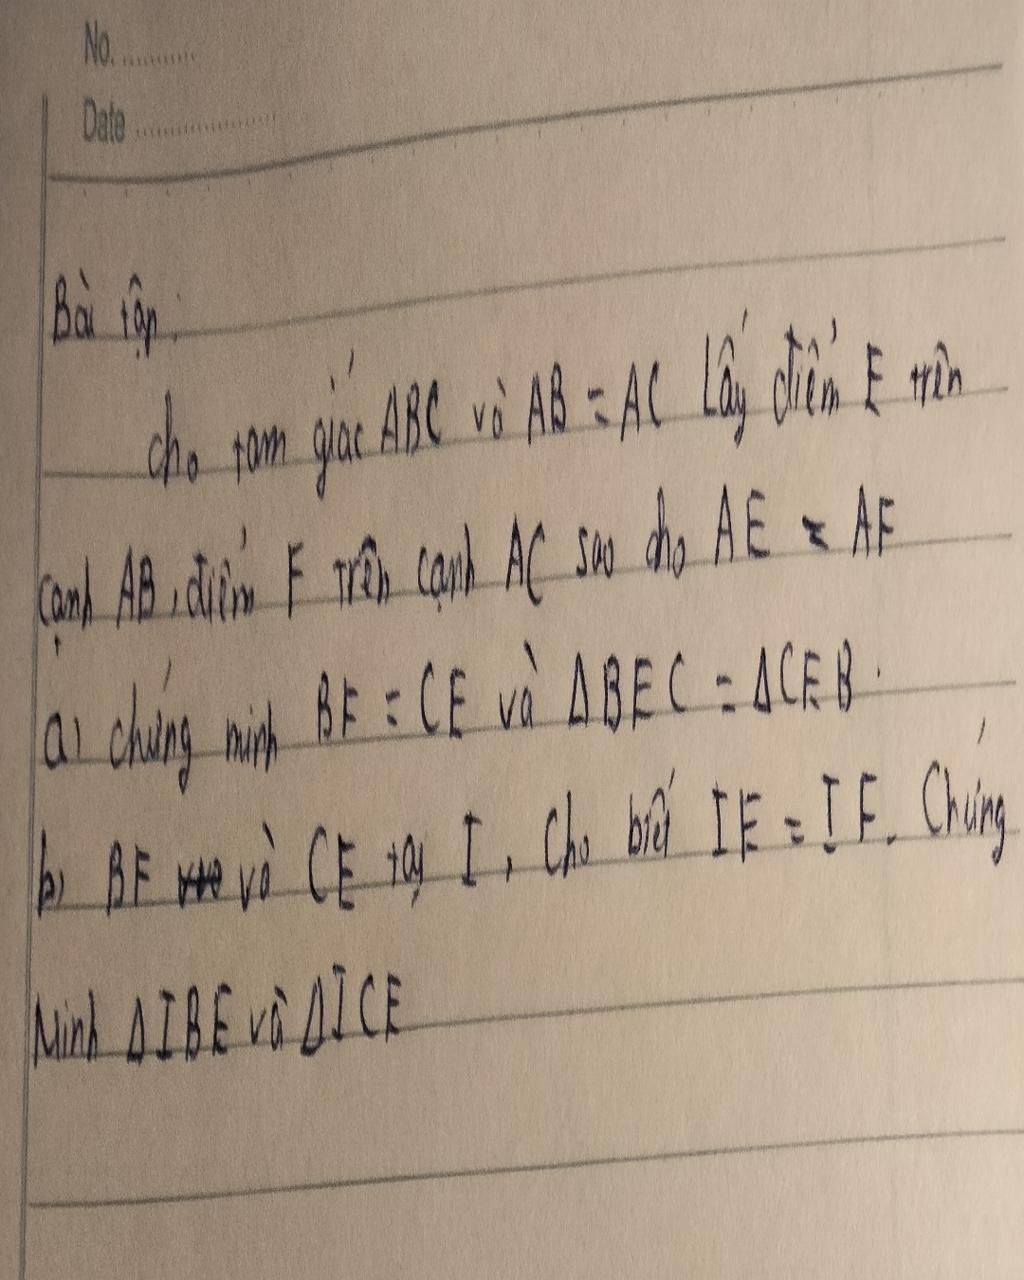 No.............
Date....................
Bài tập:
cho tam giác ABC và AB = AC Lấy điểm E trên
cạnh AB, điểm F trên cạnh AC sao cho AE = AF
a) chứng minh BF = CE và ΔBEC = ΔCFB.
b) BF và CE tại I, Cho biết IE = IF. Chứng
Minh ΔIBE và ΔICF